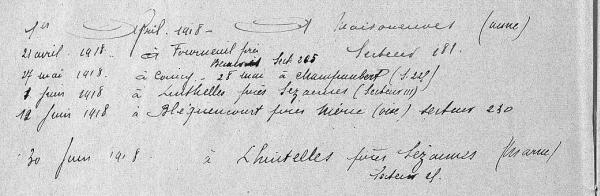 1er Avril. 1918 - à Maisoneuves (Marne)
21 avril. 1918. - à Fourneuil près Secteur 181.
Beauvais Sect 265
27 mai 1918. - à Coincy - 28 mai à Champaubert (S. 229)
7 Juin 1918 à Lhuitelles près Sézannes (Secteur 111)
12 Juin 1918 à Blequencourt près Méru (Oise) secteur 230
30 Juin 1918. à Lhuitelles près Sézannes (Marne)
Secteur